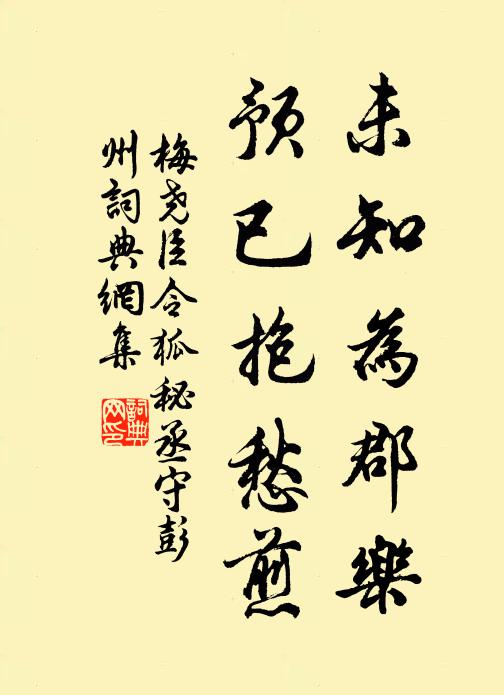 未知為郡樂
預已抱愁煎
梅堯臣令狐秘丞守彭
州詞典網集
詞典
网印